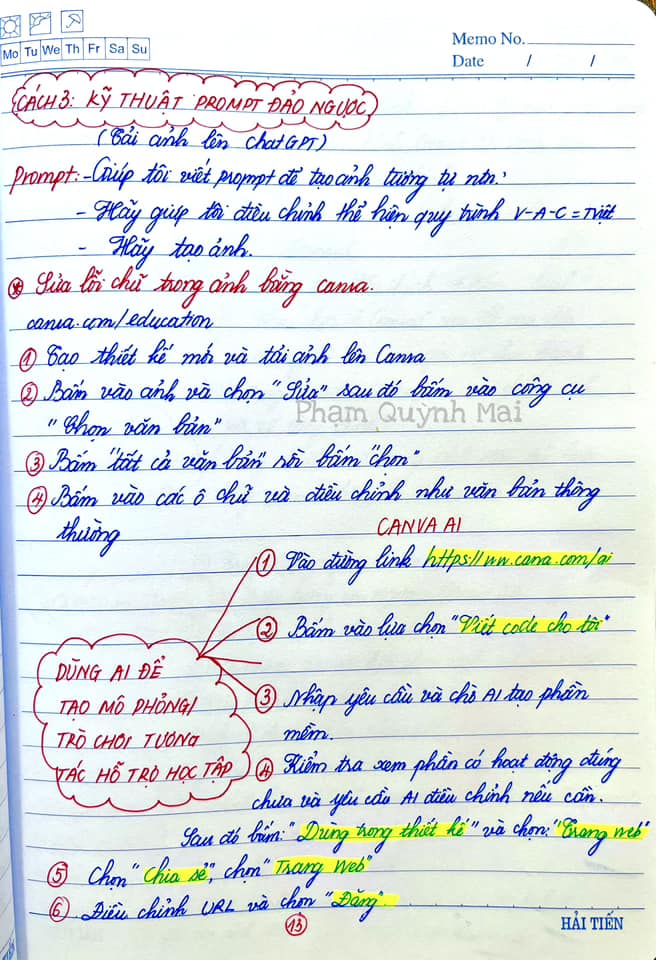 Mo Tu We Th Fr Sa Su
Memo No.
Date / /
CÁCH 3: KỸ THUẬT PROMPT ĐẢO NGƯỢC
(Tải ảnh lên ChatGPT)
Prompt: - Giúp tôi viết prompt để tạo ảnh tương tự ntn.
- Hãy giúp tôi điều chỉnh thể hiện quy trình V-A-C = TViệt
- Hãy tạo ảnh.
* Sửa lỗi chữ trong ảnh bằng canva.
canva.com/education
① Tạo thiết kế mới và tải ảnh lên Canva
② Bấm vào ảnh và chọn "Sửa" sau đó bấm vào công cụ
Phạm Quỳnh Mai
"Chọn văn bản"
③ Bấm "tất cả văn bản" rồi bấm "chọn"
④ Bấm vào các ô chữ và điều chỉnh như văn bản thông
thường
CANVA AI
① Vào đường link https://ww.cana.com/ai
② Bấm vào lựa chọn "Viết code cho tôi"
DÙNG AI ĐỂ
TẠO MÔ PHỎNG/
TRÒ CHƠI TƯƠNG
TÁC HỖ TRỢ HỌC TẬP
③ Nhập yêu cầu và chờ AI tạo phần
mềm.
④ Kiểm tra xem phần có hoạt động đúng
chưa và yêu cầu AI điều chỉnh nếu cần.
Sau đó bấm: "Dùng trong thiết kế" và chọn: "Trang web"
⑤ Chọn "Chia sẻ", chọn "Trang Web"
⑥ Điều chỉnh URL và chọn "Đăng".
13
HẢI TIẾN